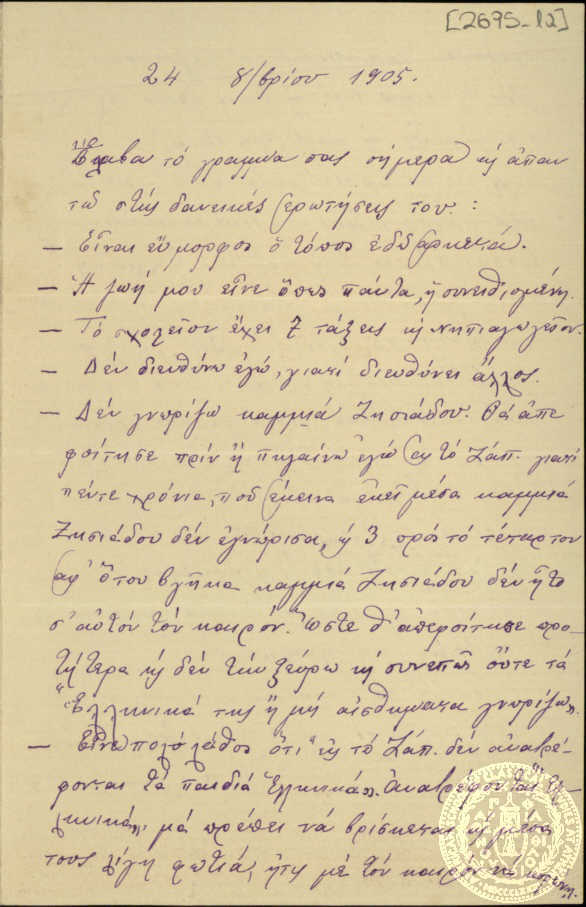 [2695-12]
24 8/βρίου 1905.
Ἔλαβα τό γράμμα σας σήμερα κ̀ ἀπαν
τῶ στής δανεικές ἐρωτήσεις του :
— Εἶναι εὔμορφος ὁ τόπος ἐδῶ ἀρκετά.
— Ἡ ζωή μου εἶνε ὅπως πάντα, ἡ συνειθισμένη.
— Τό σχολεῖον ἔχει 7 τάξεις κ̀ Νηπιαγωγεῖον.
— Δέν διευθύνω ἐγώ, γιατί διευθύνει ἄλλος.
— Δέν γνωρίζω καμμιά Ζησιάδου. Θά ἀπε
φοίτησε πρίν ἤ πηγαίνω ἐγώ εἰς τό Ζάπ. γιατί
πέντε χρόνια, πού ἔμεινα ἐκεῖ μέσα καμμιά
Ζησιάδου δέν ἐγνώρισα, κ̀ 3 πρό τό τέταρτον
ἀφ' ὅτου βγῆκα καμμιά Ζησιάδου δέν ἦτο
σ' αὐτόν τόν καιρόν. Ὥστε θ' ἀπεφοίτησε προ
τήτερα κ̀ δέν τήν ξεύρω κ̀ συνεπῶς οὔτε τά
"Ἑλληνικά της ἤ μή αἰσθήματα γνωρίζω".
— Εἶνε πολύ λάθος ὅτι "εἰς τό Ζάπ. δέν ἀνατρέ
φονται τά παιδιά Ἑλληνικά". Ἀνατρέφονται "Ἑλ
ληνικά", μά πρέπει νά βρίσκεται κ̀ μέσα
τους λίγη φωτιά, ἥτις μέ τόν καιρόν νά